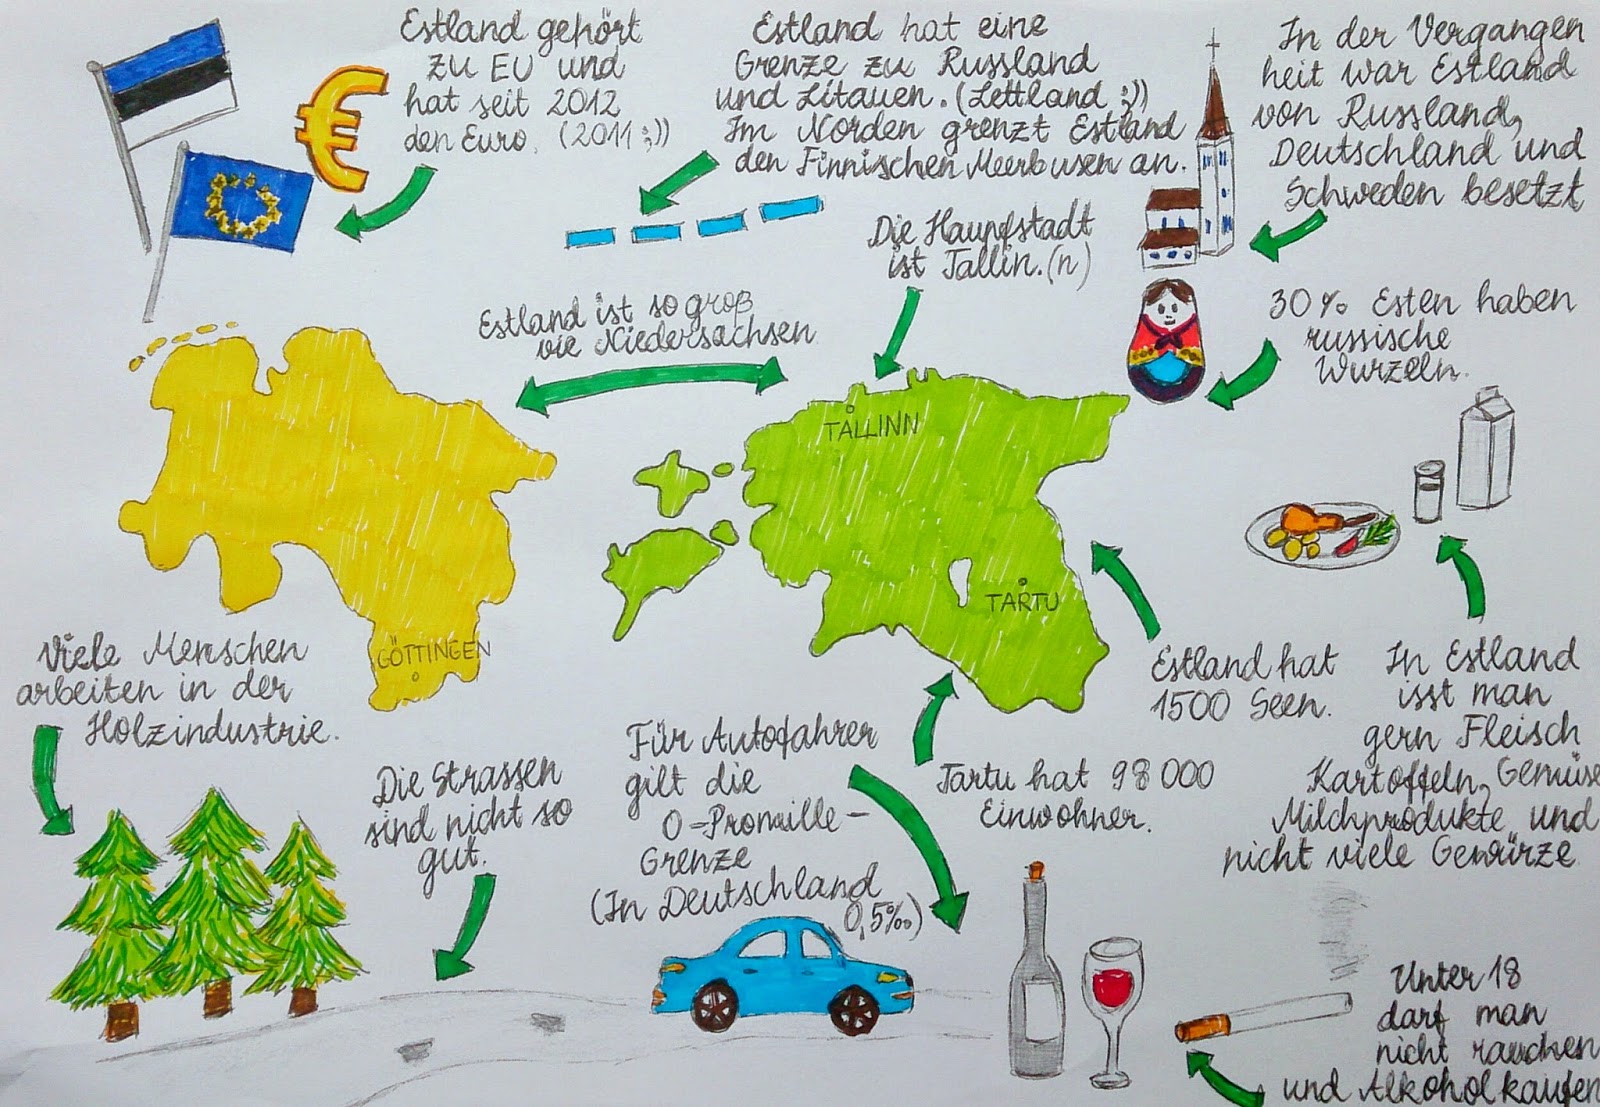 Estland gehört
zu EU und
hat seit 2012
den Euro. (2011 ;))
Estland hat eine
Grenze zu Russland
und Litauen. (Lettland ;))
Im Norden grenzt Estland
den Finnischen Meerbusen an.
In der Vergangen
heit war Estland
von Russland,
Deutschland und
Schweden besetzt
Die Haupfstadt
ist Tallin. (n)
Estland ist so groß
wie Niedersachsen
30% Esten haben
russische
Wurzeln.
TALLINN
TARTU
GÖTTINGEN
Viele Menschen
arbeiten in der
Holzindustrie.
Die Strassen
sind nicht so
gut.
Für Autofahrer
gilt die
0-Promille-
Grenze
(In Deutschland
0,5‰)
Tartu hat 98 000
Einwohner.
Estland hat
1500 Seen.
In Estland
isst man
gern Fleisch
Kartoffeln, Gemüse
Milchprodukte und
nicht viele Gewürze.
Unter 18
darf man
nicht rauchen
und Alkohol kaufen